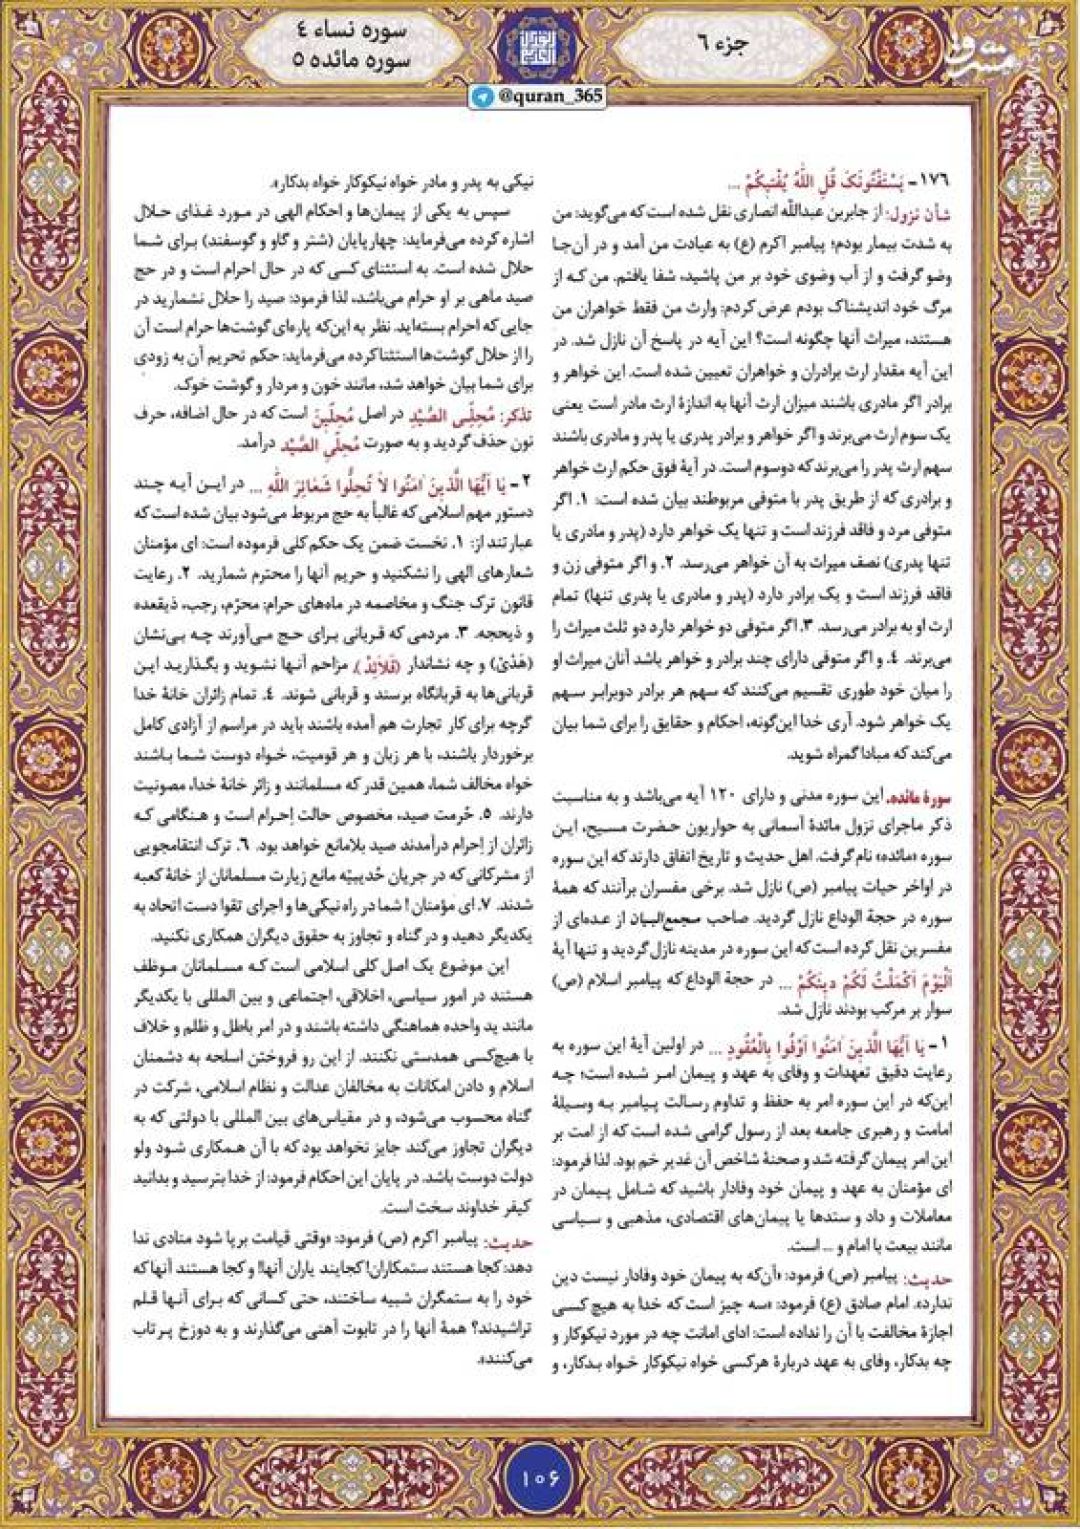 سوره نساء ٤
سوره مائده ٥
جزء ٦
مشرق
@quran_365
١٧٦- يَسْتَفْتُونَكَ قُلِ اللّٰهُ يُفْتيكُمْ ...
شأن نزول: از جابربن عبدالله انصاری نقل شده است که می‌گوید: من
به شدت بیمار بودم؛ پیامبر اکرم (ع) به عیادت من آمد و در آن‌جا
وضو گرفت و از آب وضوی خود بر من پاشید، شفا یافتم. من که از
مرگ خود اندیشناک بودم عرض کردم: وارث من فقط خواهران من
هستند، میراث آنها چگونه است؟ این آیه در پاسخ آن نازل شد. در
این آیه مقدار ارث برادران و خواهران تعیین شده است. این خواهر و
برادر اگر مادری باشند میزان ارث آنها به اندازهٔ ارث مادر است یعنی
یک سوم ارث می‌برند و اگر خواهر و برادر پدری یا پدر و مادری باشند
سهم ارث پدر را می‌برند که دوسوم است. در آیهٔ فوق حکم ارث خواهر
و برادری که از طریق پدر با متوفی مربوطند بیان شده است: ١. اگر
متوفی مرد و فاقد فرزند است و تنها یک خواهر دارد (پدر و مادری یا
تنها پدری) نصف میراث به آن خواهر می‌رسد. ٢. و اگر متوفی زن و
فاقد فرزند است و یک برادر دارد (پدر و مادری یا پدری تنها) تمام
ارث او به برادر می‌رسد. ٣. اگر متوفی دو خواهر دارد دو ثلث میراث را
می‌برند. ٤. و اگر متوفی دارای چند برادر و خواهر باشد آنان میراث او
را میان خود طوری تقسیم می‌کنند که سهم هر برادر دوبرابر سهم
یک خواهر شود. آری خدا این‌گونه، احکام و حقایق را برای شما بیان
می‌کند که مبادا گمراه شوید.
سورهٔ مائده. این سوره مدنی و دارای ١٢٠ آیه می‌باشد و به مناسبت
ذکر ماجرای نزول مائدهٔ آسمانی به حواریون حضرت مسیح، این
سوره «مائده» نام گرفت. اهل حدیث و تاریخ اتفاق دارند که این سوره
در اواخر حیات پیامبر (ص) نازل شد. برخی مفسران برآنند که همهٔ
سوره در حجة الوداع نازل گردید. صاحب مجمع‌البیان از عده‌ای از
مفسرین نقل کرده است که این سوره در مدینه نازل گردید و تنها آیهٔ
اَلْيَوْمَ اَكْمَلْتُ لَكُمْ دينَكُمْ ... در حجة الوداع که پیامبر اسلام (ص)
سوار بر مرکب بودند نازل شد.
١- يٰا اَيُّهَا الَّذينَ اٰمَنُوا اَوْفُوا بِالْعُقُودِ ... در اولین آیهٔ این سوره به
رعایت دقیق تعهدات و وفای به عهد و پیمان امر شده است؛ چه
این‌که در این سوره امر به حفظ و تداوم رسالت پیامبر به وسیلهٔ
امامت و رهبری جامعه بعد از رسول گرامی شده است که از امت بر
این امر پیمان گرفته شد و صحنهٔ شاخص آن غدیر خم بود. لذا فرمود:
ای مؤمنان به عهد و پیمان خود وفادار باشید که شامل پیمان در
معاملات و داد و ستدها یا پیمان‌های اقتصادی، مذهبی و سیاسی
مانند بیعت با امام و ... است.
حدیث: پیامبر (ص) فرمود: «آن‌که به پیمان خود وفادار نیست دین
ندارد». امام صادق (ع) فرمود: «سه چیز است که خدا به هیچ کسی
اجازهٔ مخالفت با آن را نداده است: ادای امانت چه در مورد نیکوکار و
چه بدکار، وفای به عهد دربارهٔ هرکسی خواه نیکوکار خواه بدکار، و
نیکی به پدر و مادر خواه نیکوکار خواه بدکار».
سپس به یکی از پیمان‌ها و احکام الهی در مورد غذای حلال
اشاره کرده می‌فرماید: چهارپایان (شتر و گاو و گوسفند) برای شما
حلال شده است. به استثنای کسی که در حال احرام است و در حج
صید ماهی بر او حرام می‌باشد، لذا فرمود: صید را حلال نشمارید در
جایی که احرام بسته‌اید. نظر به این‌که پاره‌ای گوشت‌ها حرام است آن
را از حلال گوشت‌ها استثنا کرده می‌فرماید: حکم تحریم آن به زودی
برای شما بیان خواهد شد، مانند خون و مردار و گوشت خوک.
تذکر: مُحِلِّی الصَّيْدِ در اصل مُحِلّينَ است که در حال اضافه، حرف
نون حذف گردید و به صورت مُحِلِّی الصَّيْد درآمد.
٢- يٰا اَيُّهَا الَّذينَ اٰمَنُوا لاٰ تُحِلُّوا شَعٰائِرَ اللّٰهِ ... در این آیه چند
دستور مهم اسلامی که غالباً به حج مربوط می‌شود بیان شده است که
عبارتند از: ١. نخست ضمن یک حکم کلی فرموده است: ای مؤمنان
شعارهای الهی را نشکنید و حریم آنها را محترم شمارید. ٢. رعایت
قانون ترک جنگ و مخاصمه در ماه‌های حرام: محرّم، رجب، ذیقعده
و ذیحجه. ٣. مردمی که قربانی برای حج می‌آورند چه بی‌نشان
(هَدْیْ) و چه نشاندار (قَلاٰئِدْ)، مزاحم آنها نشوید و بگذارید این
قربانی‌ها به قربانگاه برسند و قربانی شوند. ٤. تمام زائران خانهٔ خدا
گرچه برای کار تجارت هم آمده باشند باید در مراسم از آزادی کامل
برخوردار باشند، با هر زبان و هر قومیت، خواه دوست شما باشند
خواه مخالف شما، همین قدر که مسلمانند و زائر خانهٔ خدا، مصونیت
دارند. ٥. حُرمت صید، مخصوص حالت إحرام است و هنگامی که
زائران از إحرام درآمدند صید بلامانع خواهد بود. ٦. ترک انتقامجویی
از مشرکانی که در جریان حُدیبیّه مانع زیارت مسلمانان از خانهٔ کعبه
شدند. ٧. ای مؤمنان! شما در راه نیکی‌ها و اجرای تقوا دست اتحاد به
یکدیگر دهید و در گناه و تجاوز به حقوق دیگران همکاری نکنید.
این موضوع یک اصل کلی اسلامی است که مسلمانان موظف
هستند در امور سیاسی، اخلاقی، اجتماعی و بین المللی با یکدیگر
مانند ید واحده هماهنگی داشته باشند و در امر باطل و ظلم و خلاف
با هیچ‌کسی همدستی نکنند. از این رو فروختن اسلحه به دشمنان
اسلام و دادن امکانات به مخالفان عدالت و نظام اسلامی، شرکت در
گناه محسوب می‌شود، و در مقیاس‌های بین المللی با دولتی که به
دیگران تجاوز می‌کند جایز نخواهد بود که با آن همکاری شود ولو
دولت دوست باشد. در پایان این احکام فرمود: از خدا بترسید و بدانید
کیفر خداوند سخت است.
حدیث: پیامبر اکرم (ص) فرمود: «وقتی قیامت برپا شود منادی ندا
دهد: کجا هستند ستمکاران! کجایند یاران آنها! و کجا هستند آنها که
خود را به ستمگران شبیه ساختند، حتی کسانی که برای آنها قلم
تراشیدند؟ همهٔ آنها را در تابوت آهنی می‌گذارند و به دوزخ پرتاب
می‌کنند».
١٠٦